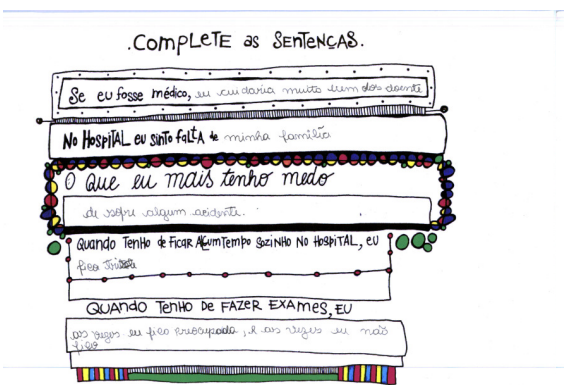 .COMPLETE as SENTENÇAS.
Se eu fosse médico, eu cuidaria muito bem dos doente
No HospiTAL eu sinto falta de minha família
O Que eu mais tenho medo
de sofre algum acidente.
Quando Tenho de Ficar AlgumTempo Sozinho No HospiTAL, eu
fico Triste
QUANDO TENHO DE FAZER EXAMES, EU
as vezes eu fico preocupada, e as vezes eu não
fico